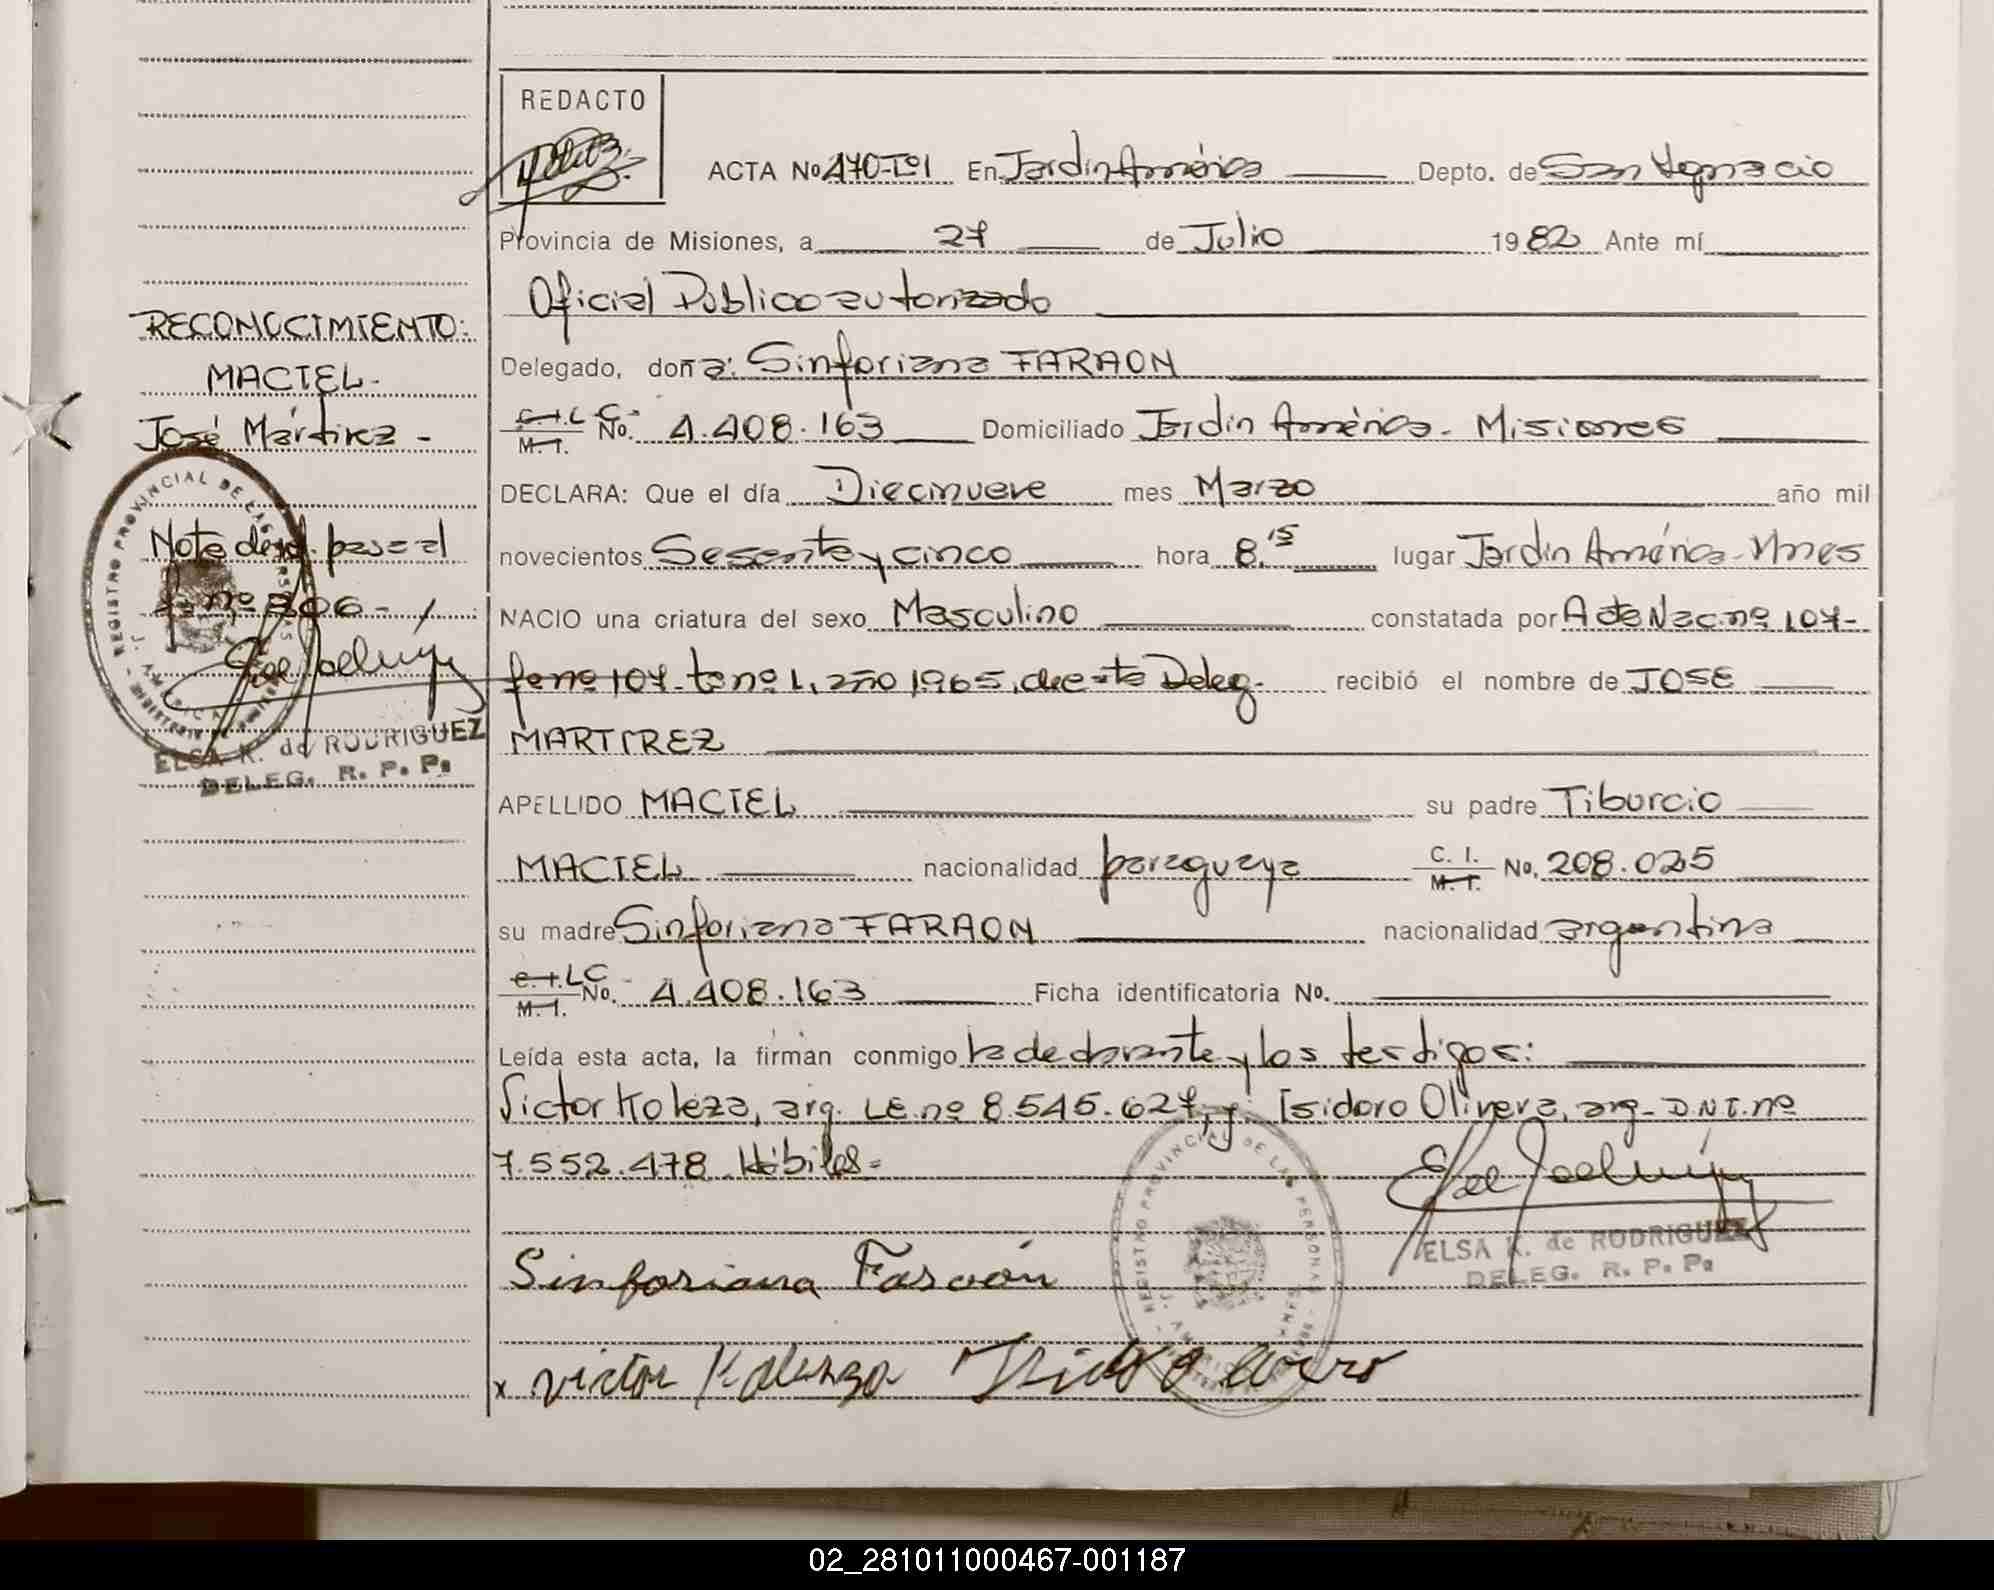 REDACTO
ACTA No 470-Tº1 En Jardin América Depto. de San Ignacio
Provincia de Misiones, a 27 de Julio 1982 Ante mí
Oficial Público autorizado
RECONOCIMIENTO:
MACIEL-
José Mártirez-
Delegado, doña: Sinforiana FARAON
C.I. L.C. M.I. No. 4.408.163 Domiciliado Jardin América - Misiones
DECLARA: Que el día Diecinueve mes Marzo año mil
Nota de ref. pasa al
fº nº 206-
novecientos Sesenta y cinco hora 8,15 lugar Jardin América-Mnes
NACIO una criatura del sexo Masculino constatada por A de Nac. nº 107-
fº nº 107- tº nº 1, año 1965, de esta Deleg. recibió el nombre de JOSE
MARTIREZ
ELSA K. de RODRIGUEZ
DELEG. R. P. P.
APELLIDO MACIEL su padre Tiburcio
MACIEL nacionalidad paraguaya C. I. M. I. No. 208.025
su madre Sinforiana FARAON nacionalidad argentina
C.I. LC M.I. No. 4.408.163 Ficha identificatoria No.
Leída esta acta, la firman conmigo la declarante y los testigos:
Victor Koleza, arg. LE. nº 8.545.627, y Isidoro Olivera, arg- D.N.I. nº
7.552.478 Hábiles=
REGISTRO PROVINCIAL DE LAS PERSONAS
ELSA K. de RODRIGUEZ
DELEG. R. P. P.
Sinforiana Faraón
x Victor
02_281011000467-001187